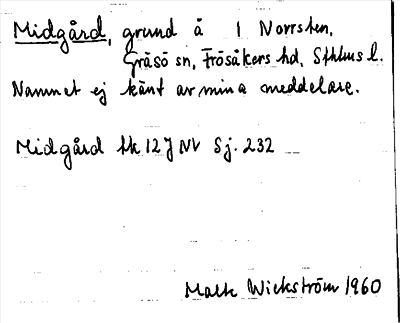 Midgård, grund å 1 Norrsten,
Gräsö sn, Frösåkers hd, Sthlms l.
Namnet ej känt av mina meddelare.
Midgård bk 12 J NV Sj. 232
Malte Wickström 1960